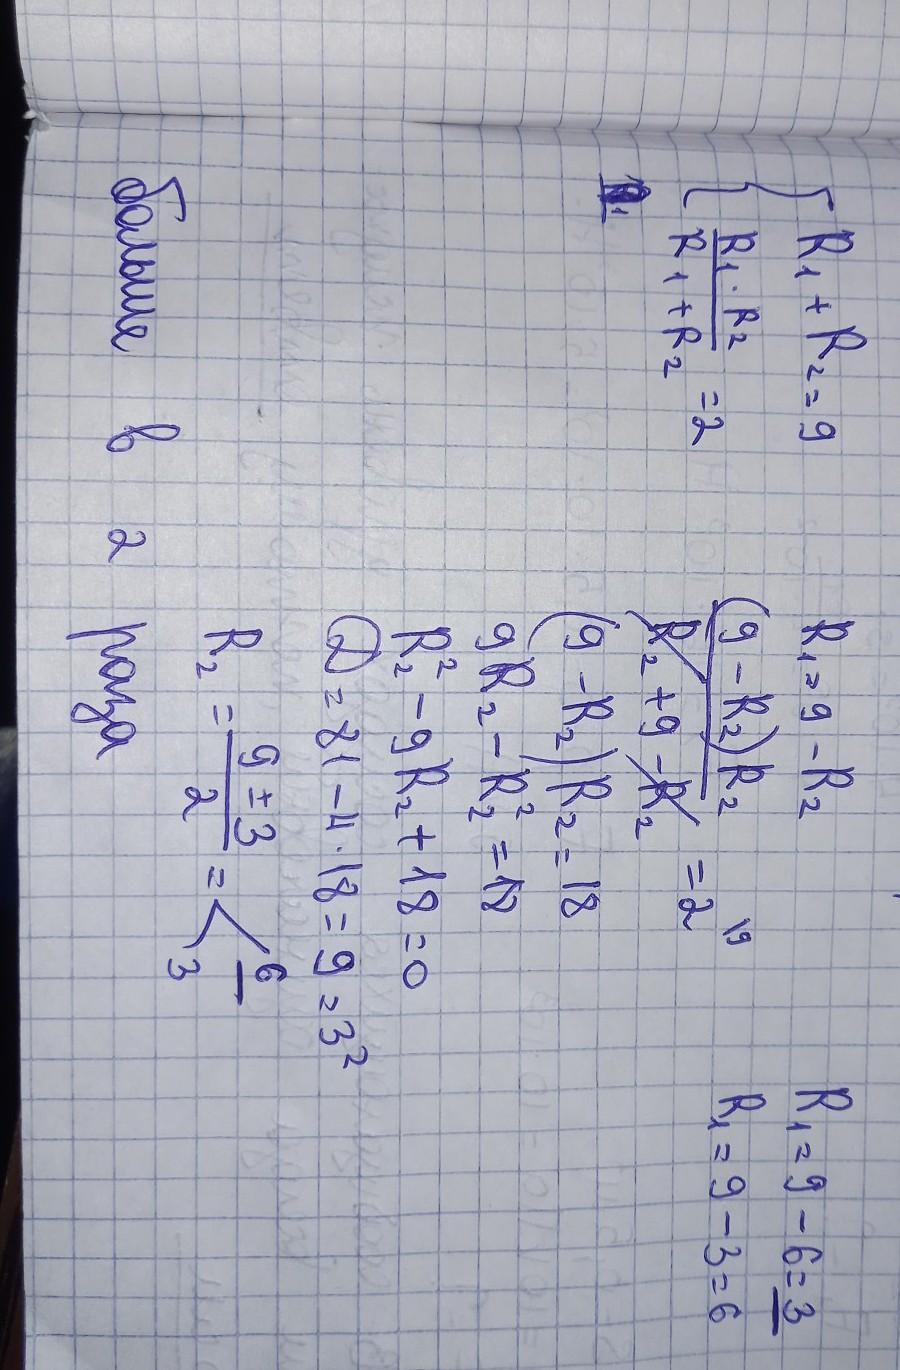 R₁ + R₂ = 9
R₁ · R₂ / R₁ + R₂ = 2
R₁ = 9 - R₂
(9 - R₂)R₂ / R₂ + 9 - R₂ = 2 |9
(9 - R₂)R₂ = 18
9R₂ - R₂² = 18
R₂² - 9R₂ + 18 = 0
D = 81 - 4 · 18 = 9 = 3²
R₂ = 9 ± 3 / 2 = < 6 3
R₁ = 9 - 6 = 3
R₁ = 9 - 3 = 6
больше в 2 раза